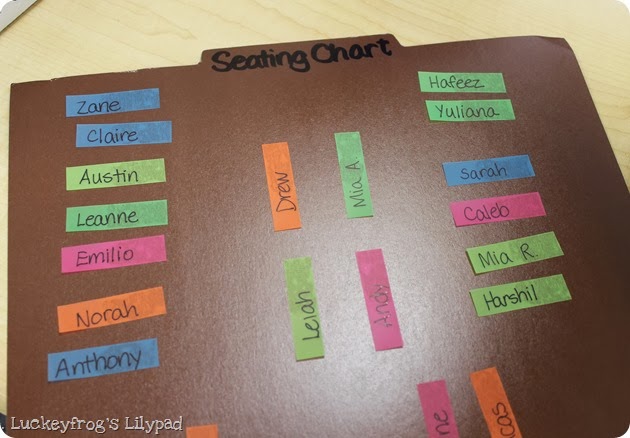 Seating Chart
Zane
Claire
Austin
Leanne
Emilio
Norah
Anthony
Drew
Mia A
Leiah
Andy
Hafeez
Yuliana
Sarah
Caleb
Mia R.
Harshil
Luckeyfrog's Lilypad